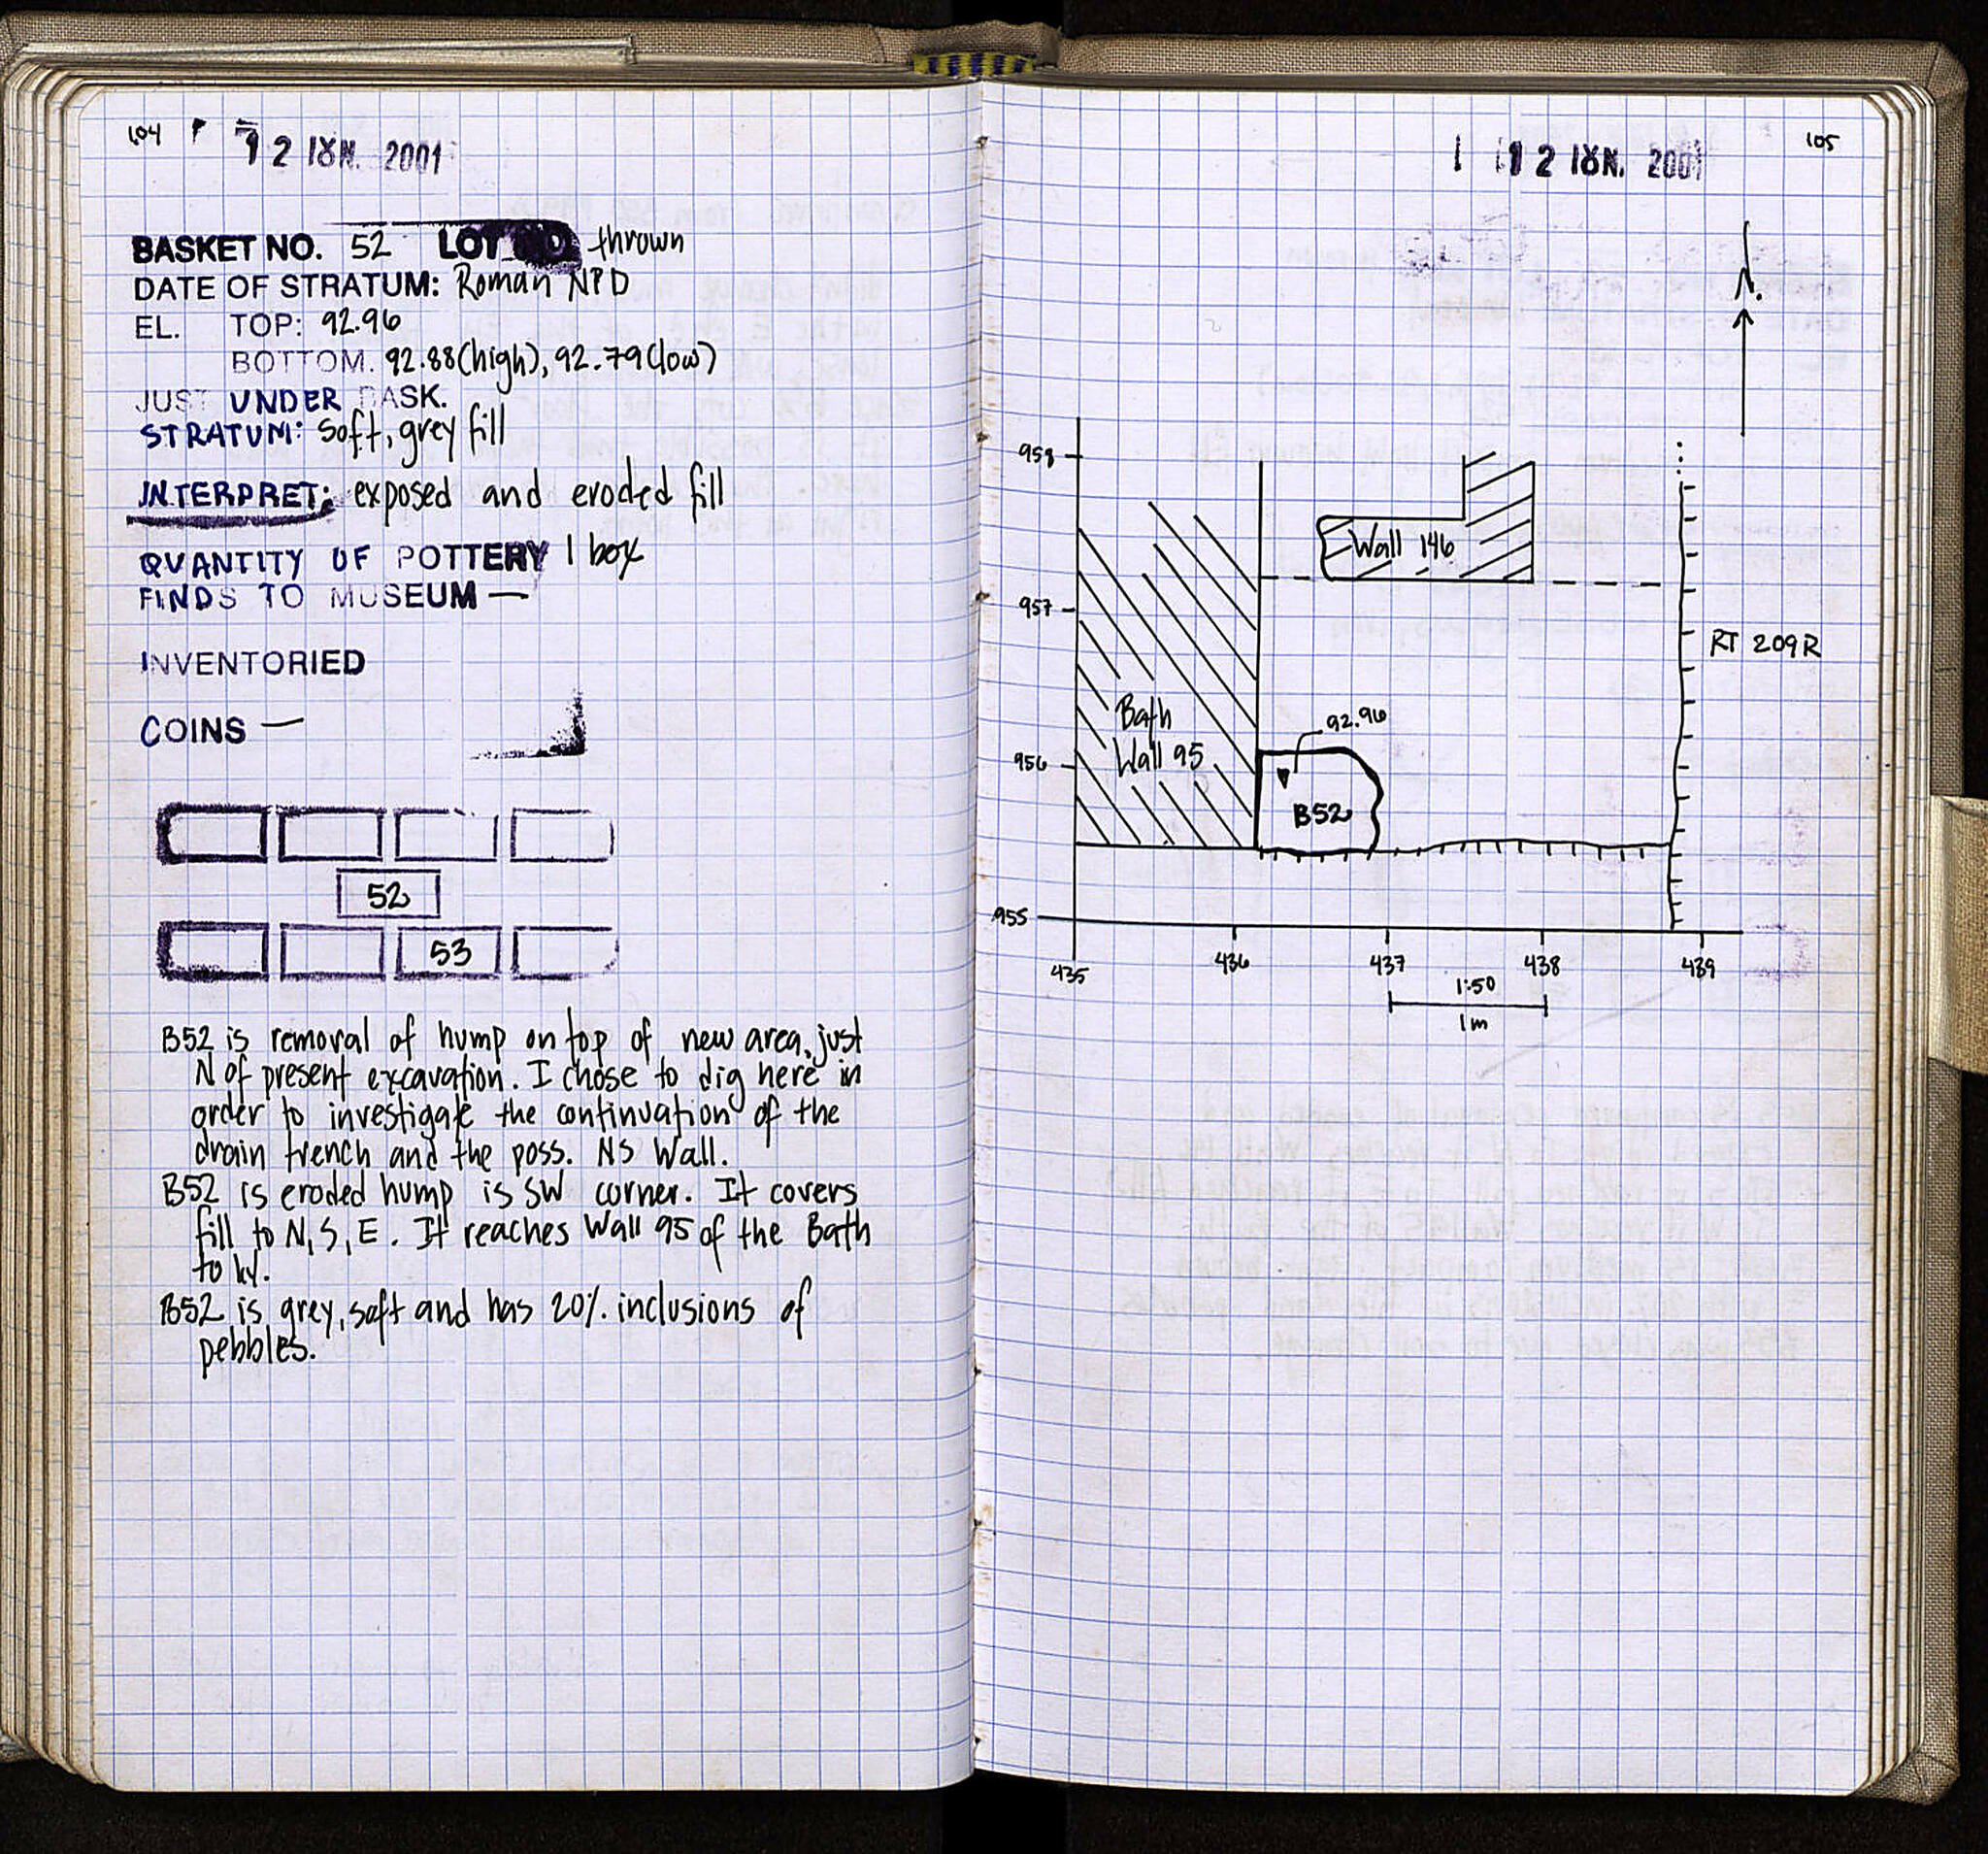 104
12 ΙΟΥΝ. 2001
BASKET NO. 52 LOT thrown
DATE OF STRATUM: Roman NPD
EL. TOP: 92.96
BOTTOM. 92.88(high), 92.79(low)
JUST UNDER BASK.
STRATUM: soft, grey fill
INTERPRET: exposed and eroded fill
QUANTITY OF POTTERY 1 box
FINDS TO MUSEUM —
INVENTORIED
COINS —
52
53
B52 is removal of hump on top of new area, just
N of present excavation. I chose to dig here in
order to investigate the continuation of the
drain trench and the poss. NS Wall.
B52 is eroded hump is SW corner. It covers
fill to N, S, E. It reaches Wall 95 of the Bath
to W.
B52 is grey, soft and has 20% inclusions of
pebbles.
105
12 ΙΟΥΝ. 2001
N.
958
Wall 146
957
RT 209R
Bath
Wall 95
92.96
956
B52
955
435 436 437 438 439
1:50
1m